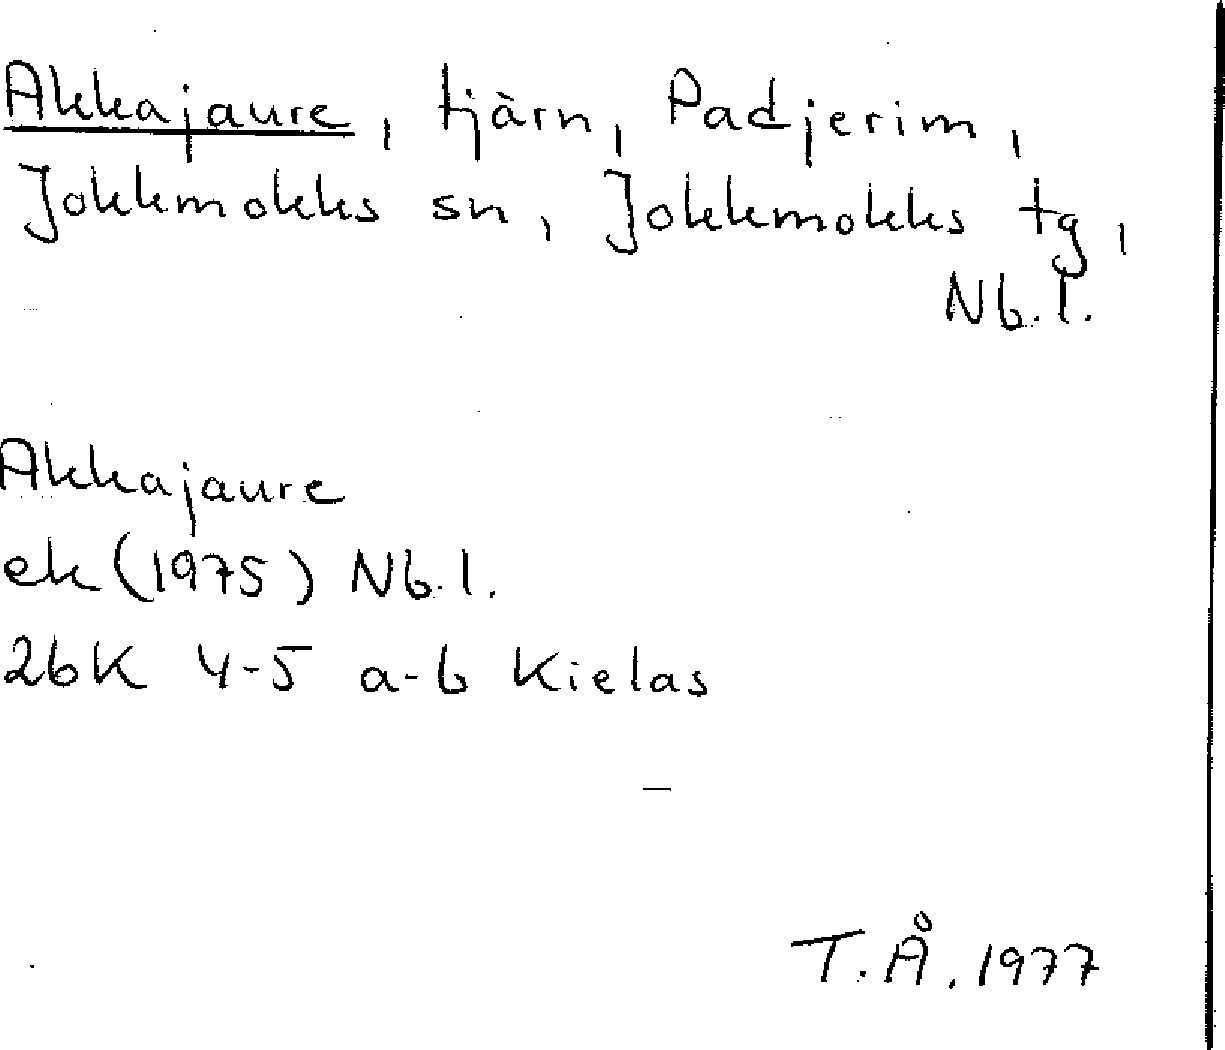 Akkajaure, tjärn, Padjerim,
Jokkmokks sn, Jokkmokks tg,
Nb.l.
Akkajaure
ek (1975) Nb.l.
26K 4-5 a-b Kielas
T.Å. 1977